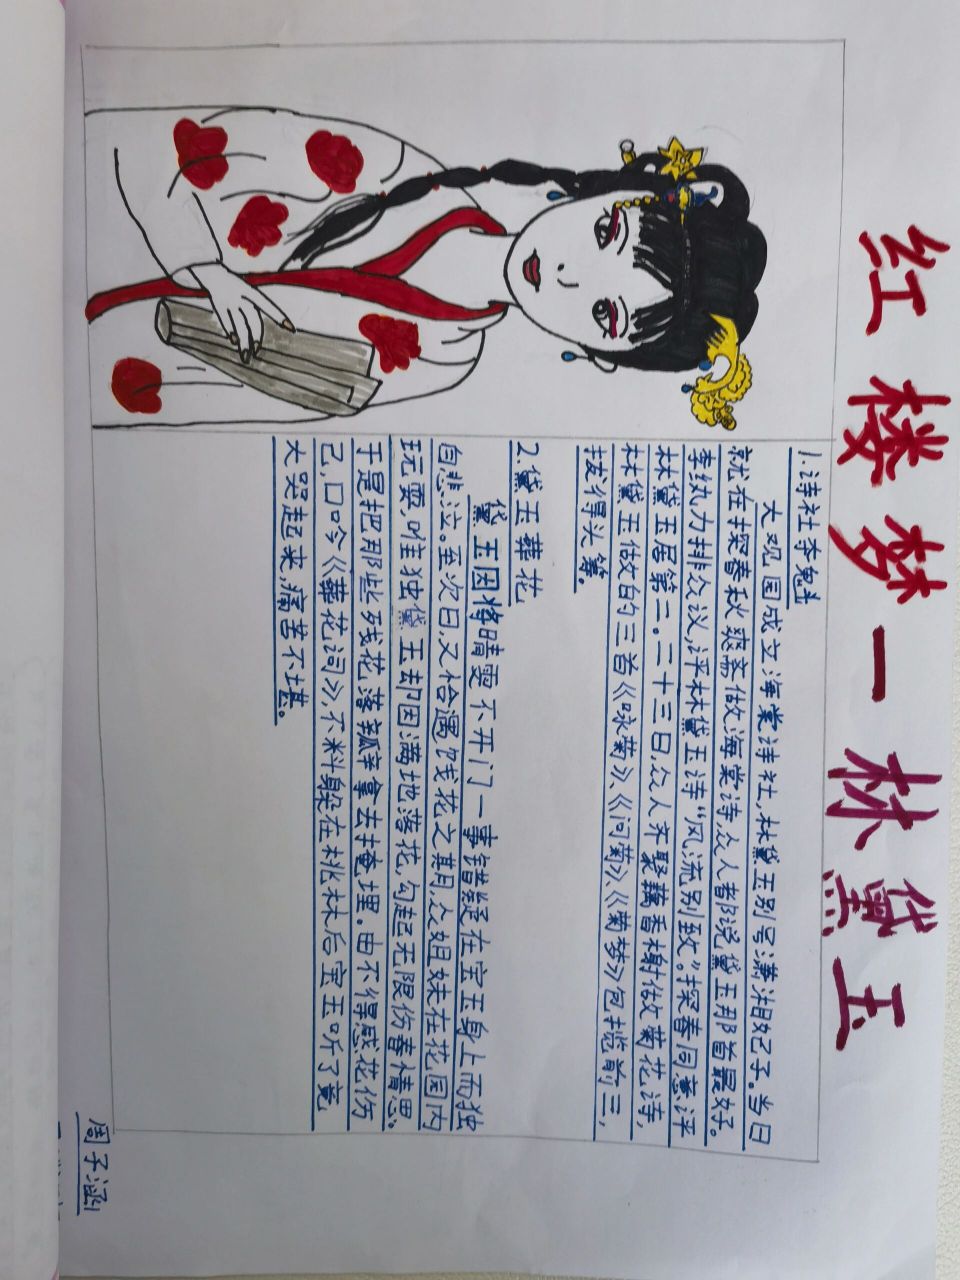 红楼梦一林黛玉
1.诗社夺魁
大观园成立海棠诗社,林黛玉别号潇湘妃子。当日
就在探春秋爽斋做海棠诗,众人都说黛玉那首最好。
李纨力排众议,评林黛玉诗“风流别致”。探春同意评
林黛玉居第二。二十三日,众人齐聚藕香榭做菊花诗,
林黛玉做的三首《咏菊》、《问菊》、《菊梦》包揽前三,
拔得头筹。
2.黛玉葬花
黛玉因将晴雯不开门一事错疑在宝玉身上而独
自悲泣。至次日,又恰遇饯花之期,众姐妹在花园内
玩耍,唯独黛玉却因满地落花,勾起无限伤春情思。
于是把那些残花落瓣拿去掩埋。由不得感花伤
己,口吟《葬花词》,不料躲在桃林后宝玉听了竟
大哭起来,痛苦不堪。
周子涵